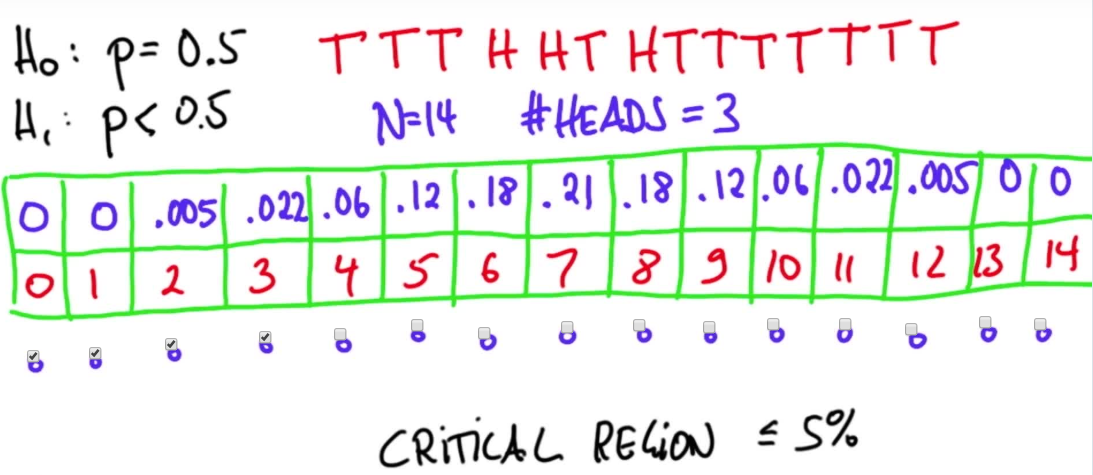 H₀: p= 0.5 T T T H H T H T T T T T T T
H₁: p< 0.5 N=14 #HEADS = 3
0 0 .005 .022 .06 .12 .18 .21 .18 .12 .06 .022 .005 0 0
0 1 2 3 4 5 6 7 8 9 10 11 12 13 14
CRiTiCAL REGiON ≤ 5%